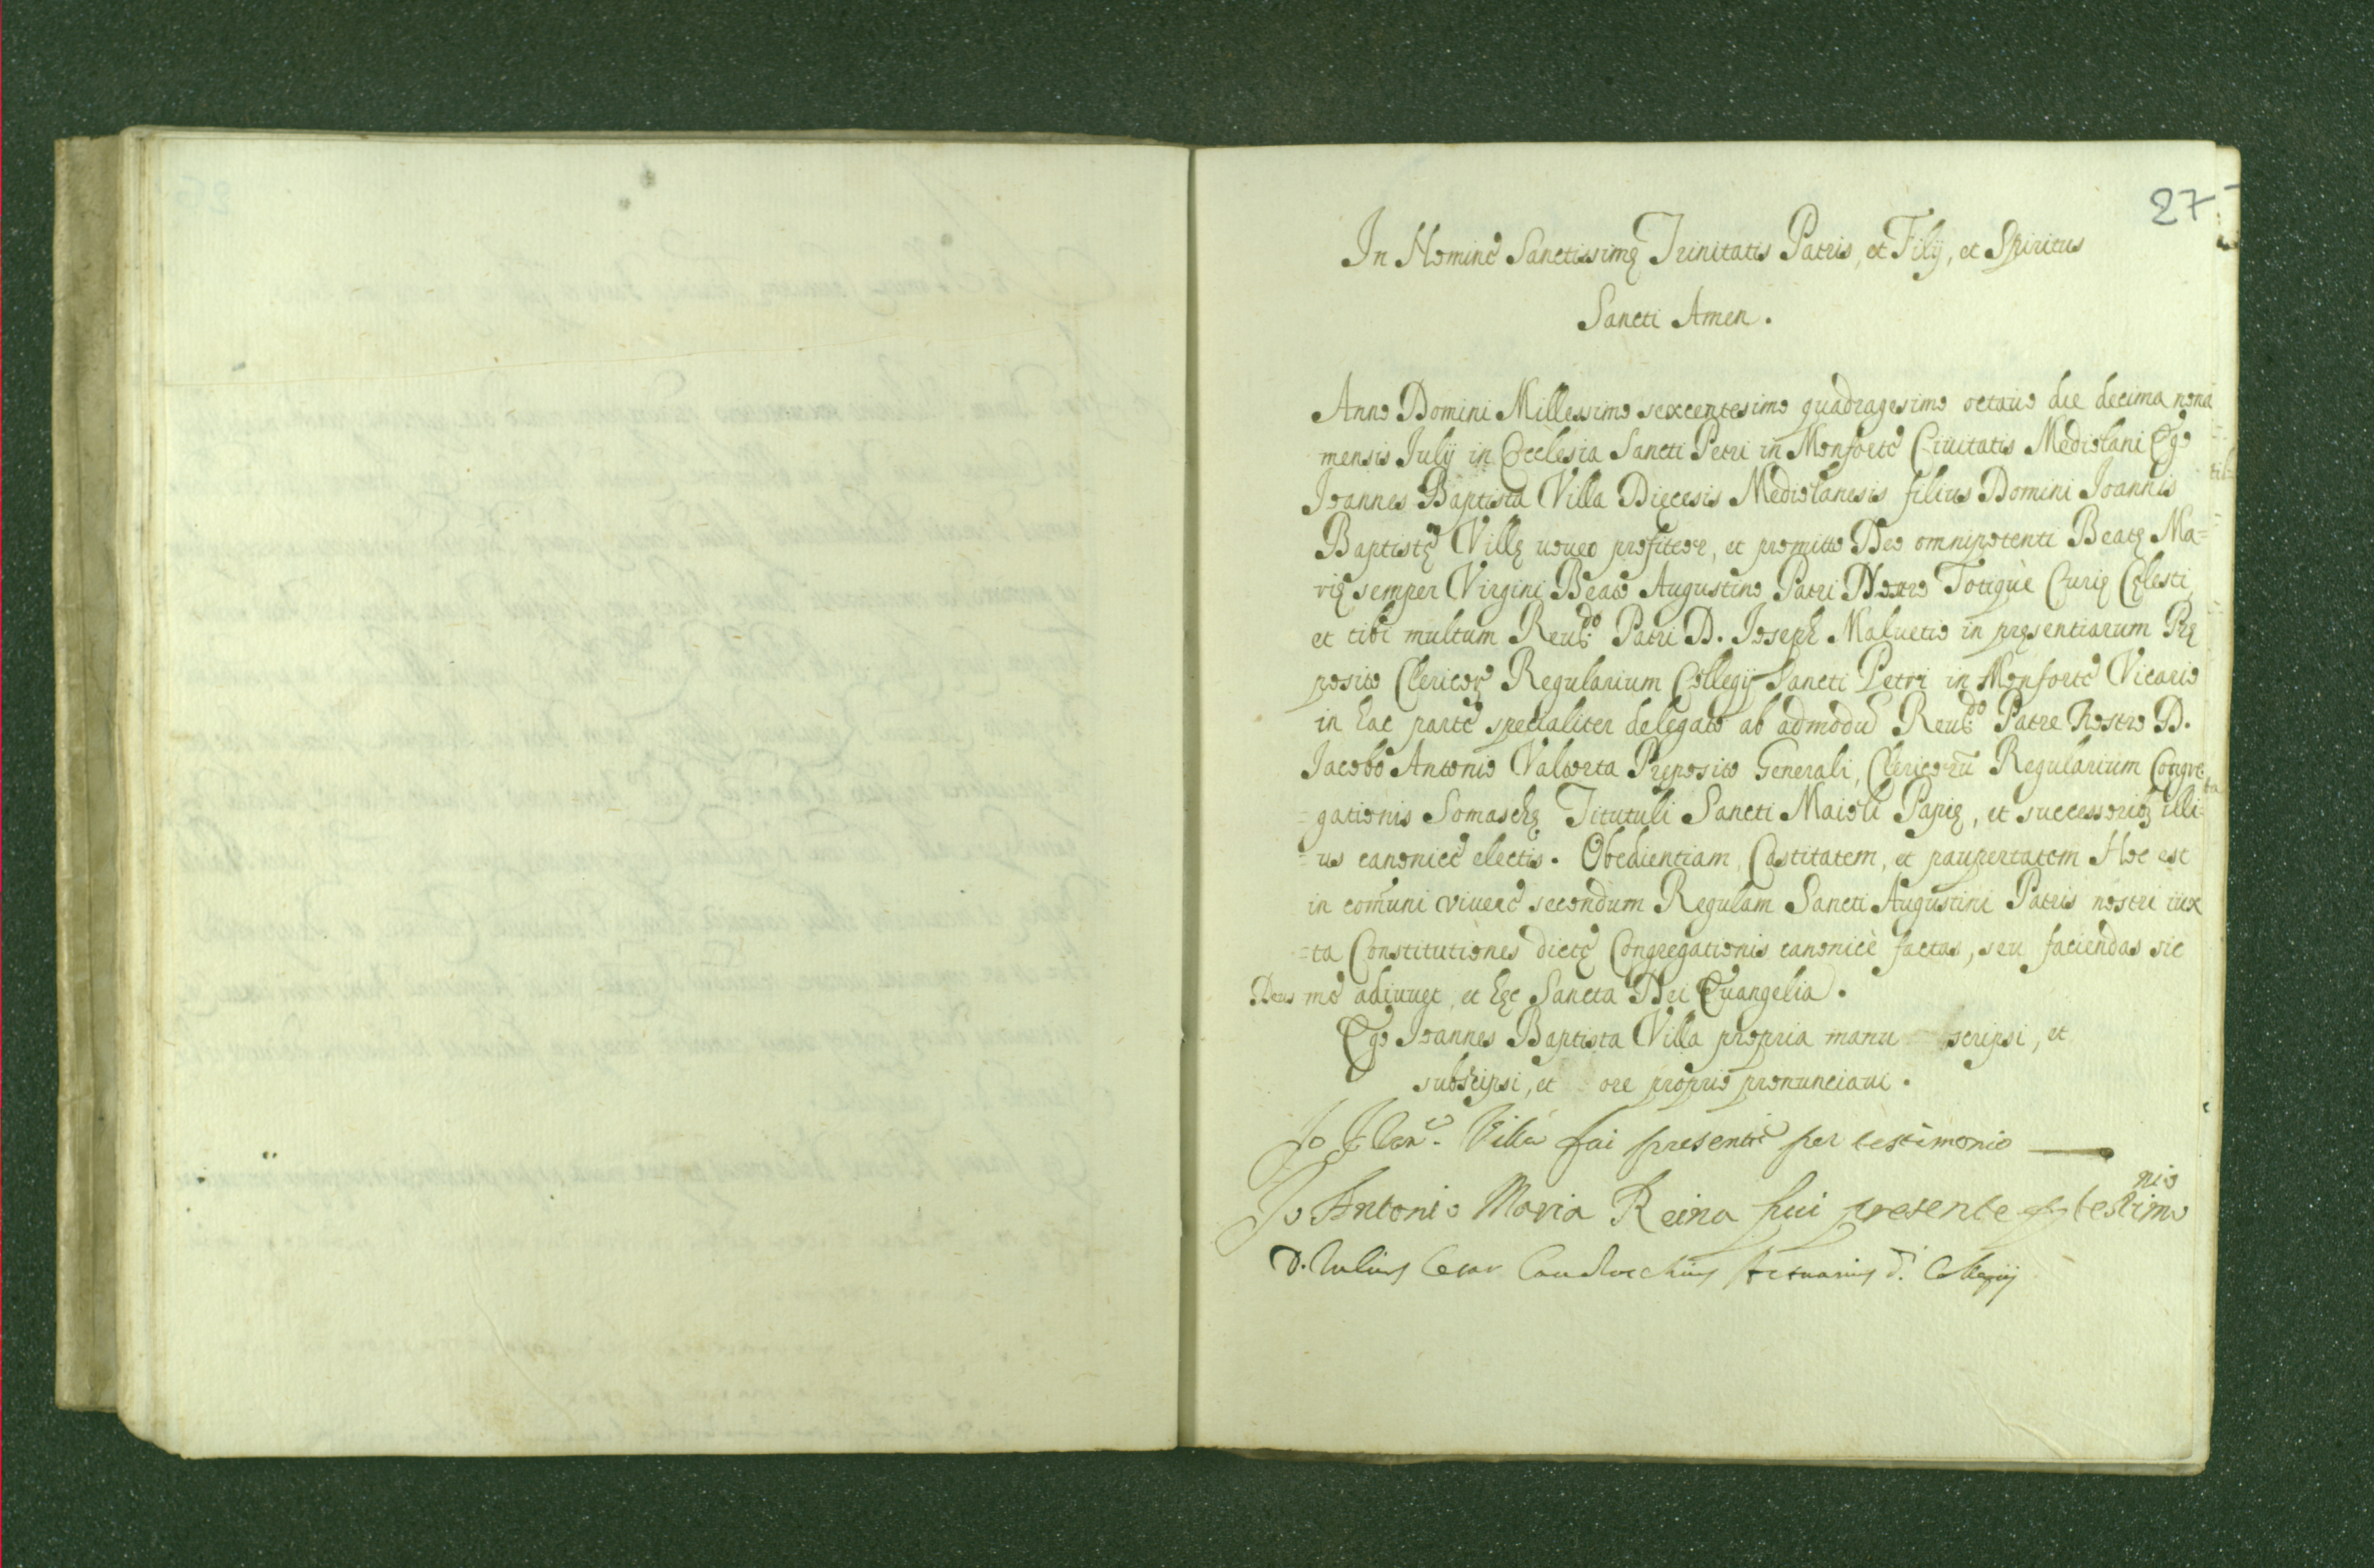 27
In Nomine Sanctissimę Trinitatis Patris, et Filij, et Spiritus
Sancti Amen.
Anno Domini Millessimo sexcentesimo quadragesimo octauo die decima nona
mensis Iulij in Ecclesia Sancti Petri in Monforte Ciuitatis Mediolani Ego
Ioannes Baptista Villa Dięcesis Mediolanesis filius Domini Ioannis
Baptistę Villę uoueo profiteor, et promitto Deo omnipotenti Beatę Ma=
rię semper Virgini Beato Augustino Patri Nostro Totiquè Curię Cęlesti,
et tibi multum Reuᵈᵒ: Patri D. Ioseph Maluetio in pręsentiarum Prę
posito Clericoꝝ Regularium Collegij Sancti Petri in Monforte Vicario
in hac parte specialiter delegato ab admodū Reuᵈᵒ: Patre Nostro D.
Iacobo Antonio Valtorta Pręposito Generali, Clericorū Regularium Congre
=gationis Somaschę Titutuli Sancti Maioli Papię, et successoribꝫ illi=
=us canonicè electis. Obedientiam, Castitatem, et paupertatem Hoc est
in com̄uni viuere secondum Regulam Sancti Augustini Patris nostri iux
=ta Constitutiones dictę Congregationis canonicè factas, seu faciendas sic
Deus me adiuuet, et hęc Sancta Dei Euangelia.
Ego Ioannes Baptista Villa propria manu scripsi, et
subscipsi, et ore proprio pronunciaui.
Io Villa fui presente per testimonio
Io Antonio Maria Reina fui presente p testimo
nio
D. Iulius Cesar Actuarius d. Collegij